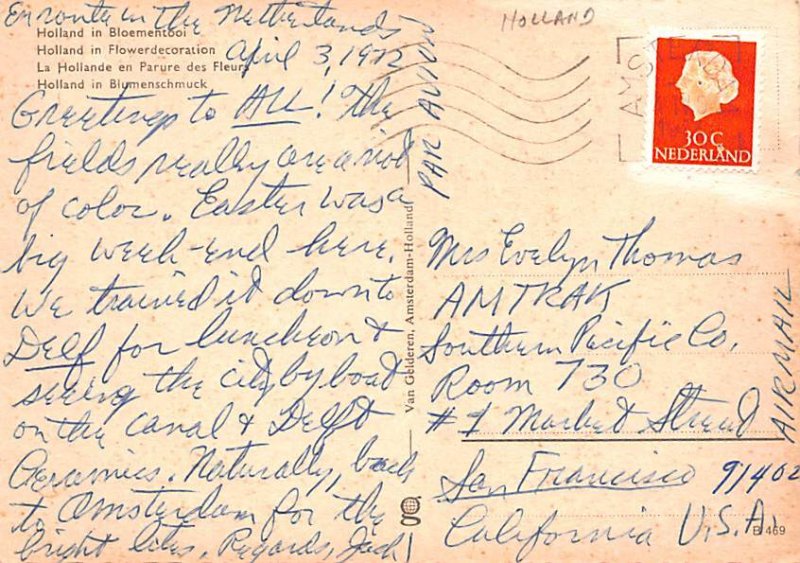 Enroute in the Netherlands
April 3, 1972
Holland in Bloementooi
Holland in Flowerdecoration
La Hollande en Parure des Fleurs
Holland in Blumenschmuck
Greetings to ALL! The
fields really are a riot
of color. Easter was a
big week-end here.
We trained it down to
Delf for luncheon &
seeing the city by boat
on the canal & Delft
Ceramics. Naturally, back
to Amsterdam for the
bright lites. Regards, Jack
PAR AVION
Van Gelderen, Amsterdam-Holland
HOLLAND
AMSTERDAM
30 C
NEDERLAND
Mrs Evelyn Thomas
AMTRAK
Southern Pacific Co.
Room 730
#1 Market Street
San Francisco 91402
California U.S.A.
AIR MAIL
B 469